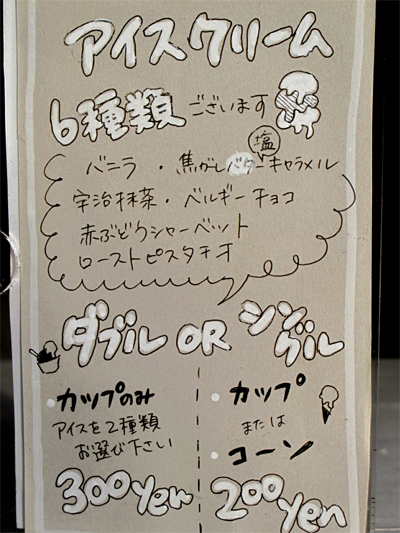 アイスクリーム
6種類ございます
塩
バニラ・焦がしバターキャラメル
宇治抹茶・ベルギーチョコ
赤ぶどうシャーベット
ローストピスタチオ
ダブル OR シングル
・カップのみ
アイスを2種類
お選び下さい
300yen
・カップ
または
・コーン
200yen